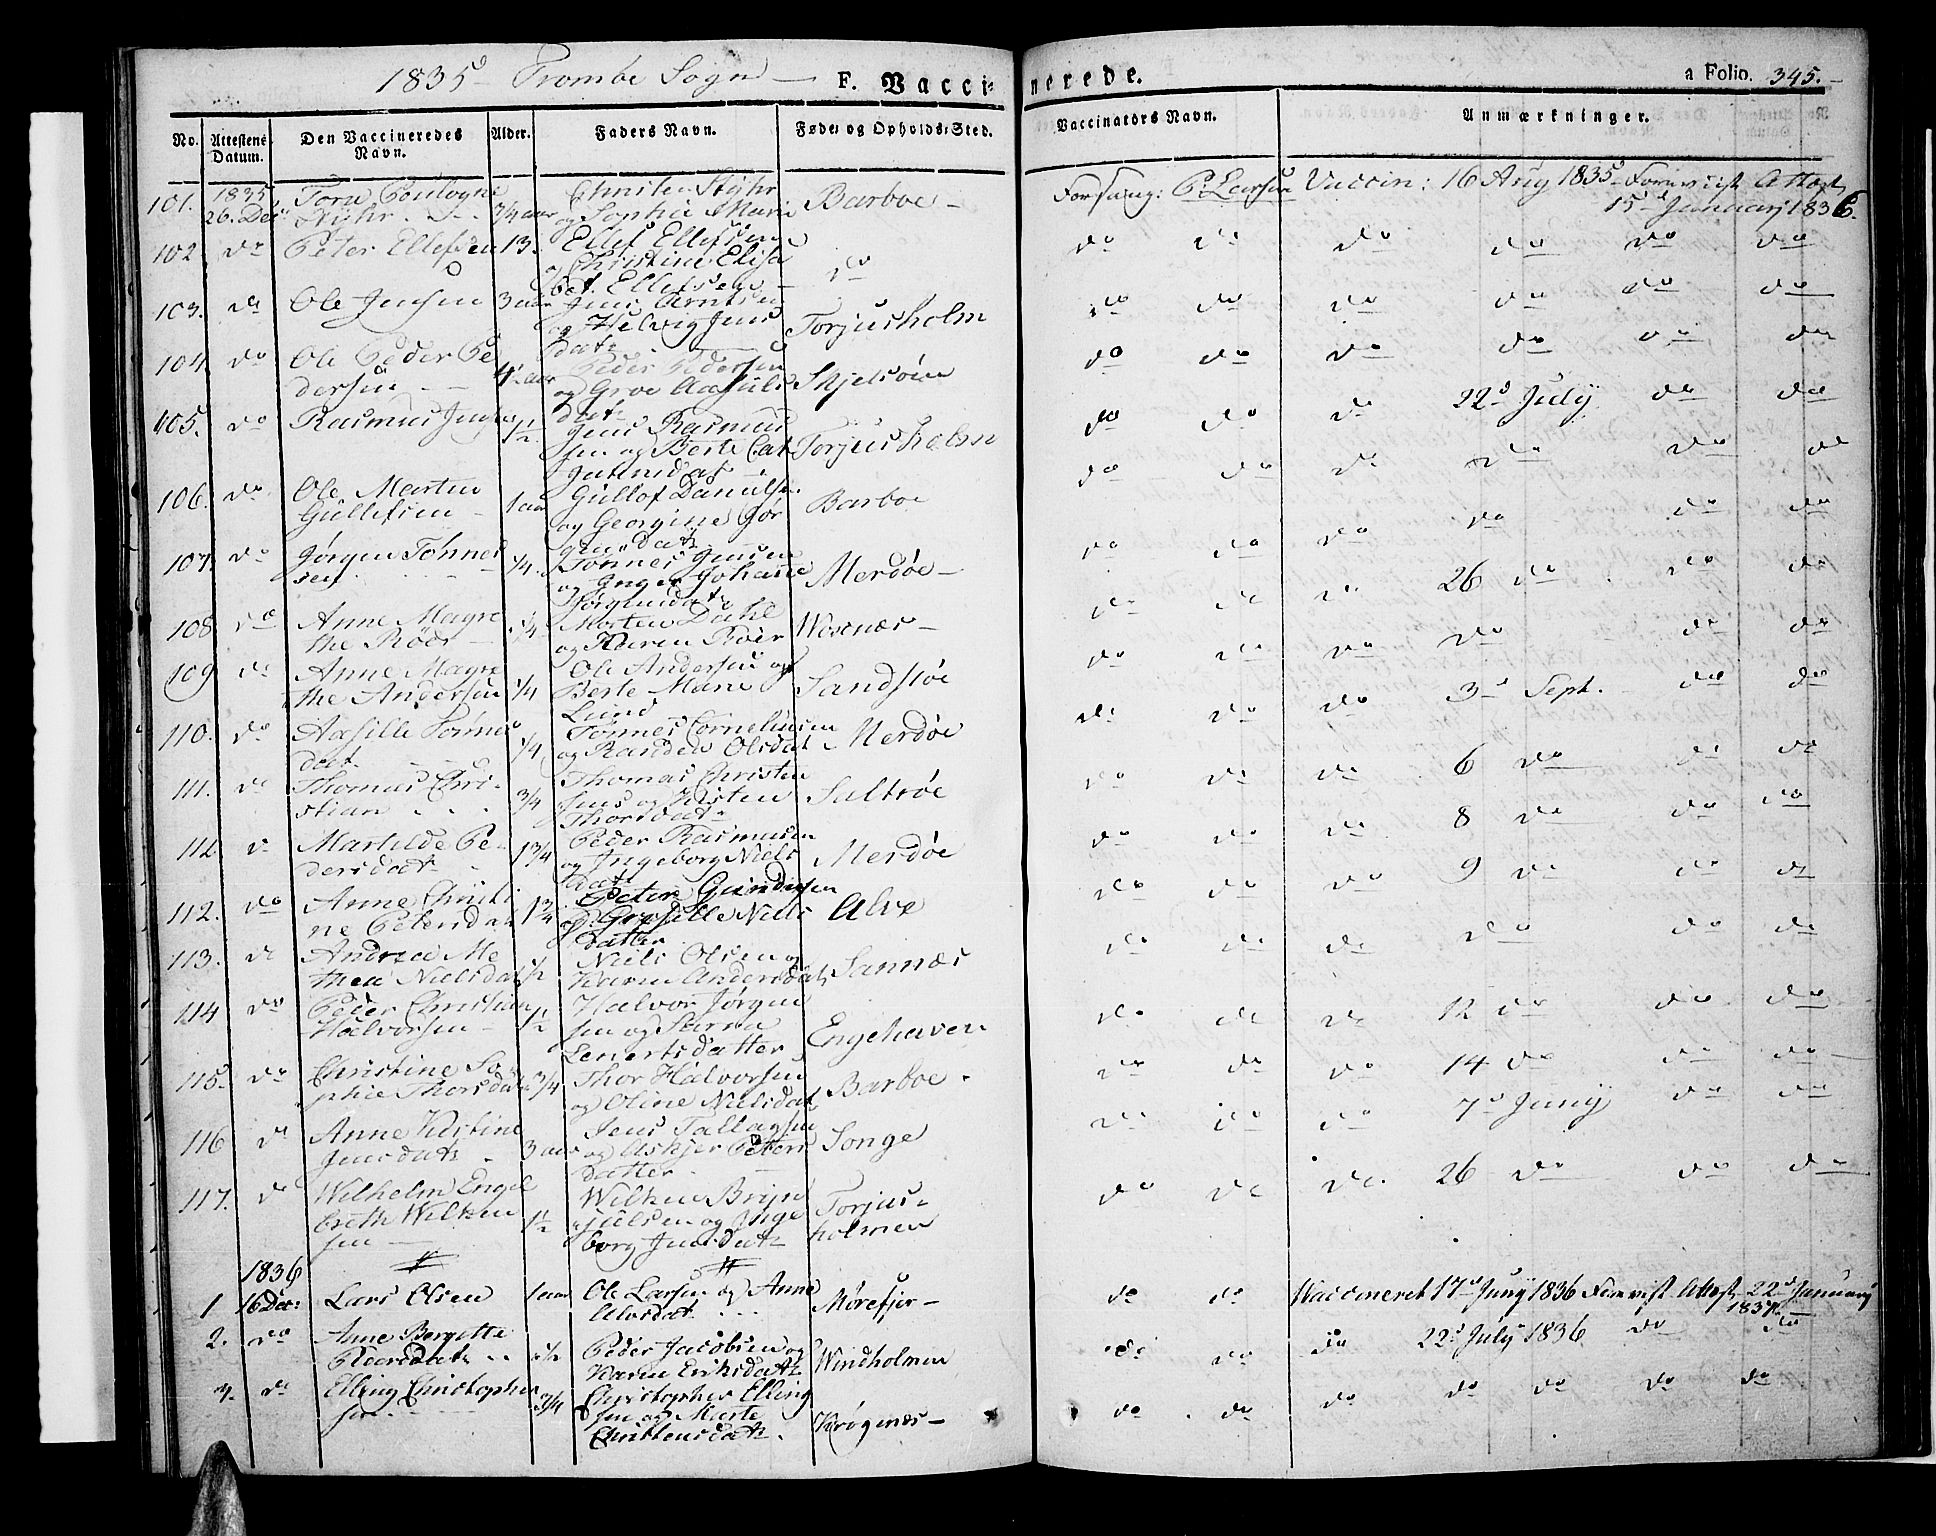 1835 Trombe Sogn F. Vaccinerede. a Folio. 345.
No. Attestens Datum. Den Vaccineredes Navn. Alder. Faders Navn. Føde- og Opholds-Sted. Vaccinators Navn. Anmærkninger.
101. 1835 26. Dec. Styhr ¾ aar Christen Styhr og Sophie Marie Barboe Larsen Vaccin: 16 Aug 1835 Foreviist Attest 15 January 1836.
102 do Peter Ellefsen 13. Ellef Ellefsen og Christine Elisabet Ellefsen do do do do do do do
103. do Ole Jensen 3 aar Jens Arntsen og Helvig Jensdatr Torjusholm do do do do do do
104 do Ole Peder Pedersen Peder Pedersen og Groe do do do do do do
105. do Rasmus Jens ½ Jens Rasmussen og Berte Cat Torjusholm do do do 22d July do do
106. do Ole Martin Gullefsen 1 aar Gullof Danielsen og Georgine Jørgensdatr Barboe do do do do do do
107. do Jørgen Tønnessen ¼ Tønnes Jensen og Inger Johanne Jørgensdatr Merdøe do do do do do do
108 do Anne Magrethe Röer ¼ Morten Dahl og Karen Röer do do do 26 do do do
109 do Anne Magrethe Andersen ¼ Ole Andersen og Berte Marie Lund Sandstøe do do do do do do
110. do Aasille Tønnesdat ¼ Tønnes Corneliusen og Randea Olsdat Merdøe do do do 3d Sept. do do
111. do Thomas Christian ¾ Thomas Christensens og Kisten Thorsdatr Saltrøe do do do 6 do do do
112 do Marthilde Pedersdatr 1¾ Peder Rasmusen og Ingeborg Nielsdatr Merdøe do do do 8 do do do
112. do Anne Christine Petersdatr 1¾ Peter Gundersen og Groesille Nielsdatter Alve do do do 9 do do do
113. do Andrea Methea Nielsdat ½ Niels Olsen og Karen Andersdatr Sannæs do do do do do do
114 do Peder Christian Halvorsen ½ Halvor Jørgensen og Lenertsdatter Engehaven do do do 12 do do do
115. do Christine Sophie Thorsdatr ¾ Thor Halvorsen og Oline Nielsdatr Barboe do do do 14 do do do
116 do Anne Kistine Jensdatr 3 aar Jens Tallagsen og Askjer Petersdatter Songe do do do 7d Juny do do
117. do Wilhelm Engelbreth Wilkensen 1½ Wilken og Ingeborg Jensdatr Torjusholmen do do do 26 do do do
1836
1 16 Dec: Lars Olsen 1 aar Ole Larsen og Anne Alvsdat Mørefjer do do Vaccineret 17d Juny 1836 Foreviist Attest 22d January 1837.
2. do Anne Bergitte ½ Peder Jacobsen og Karen Eriksdatr Windholmen do do do 22d July 1836 do do
3. do Elling Christophersen ¾ Christopher Ellingsen og Marte Christensdatr. Krøgenæs do do do do do do do